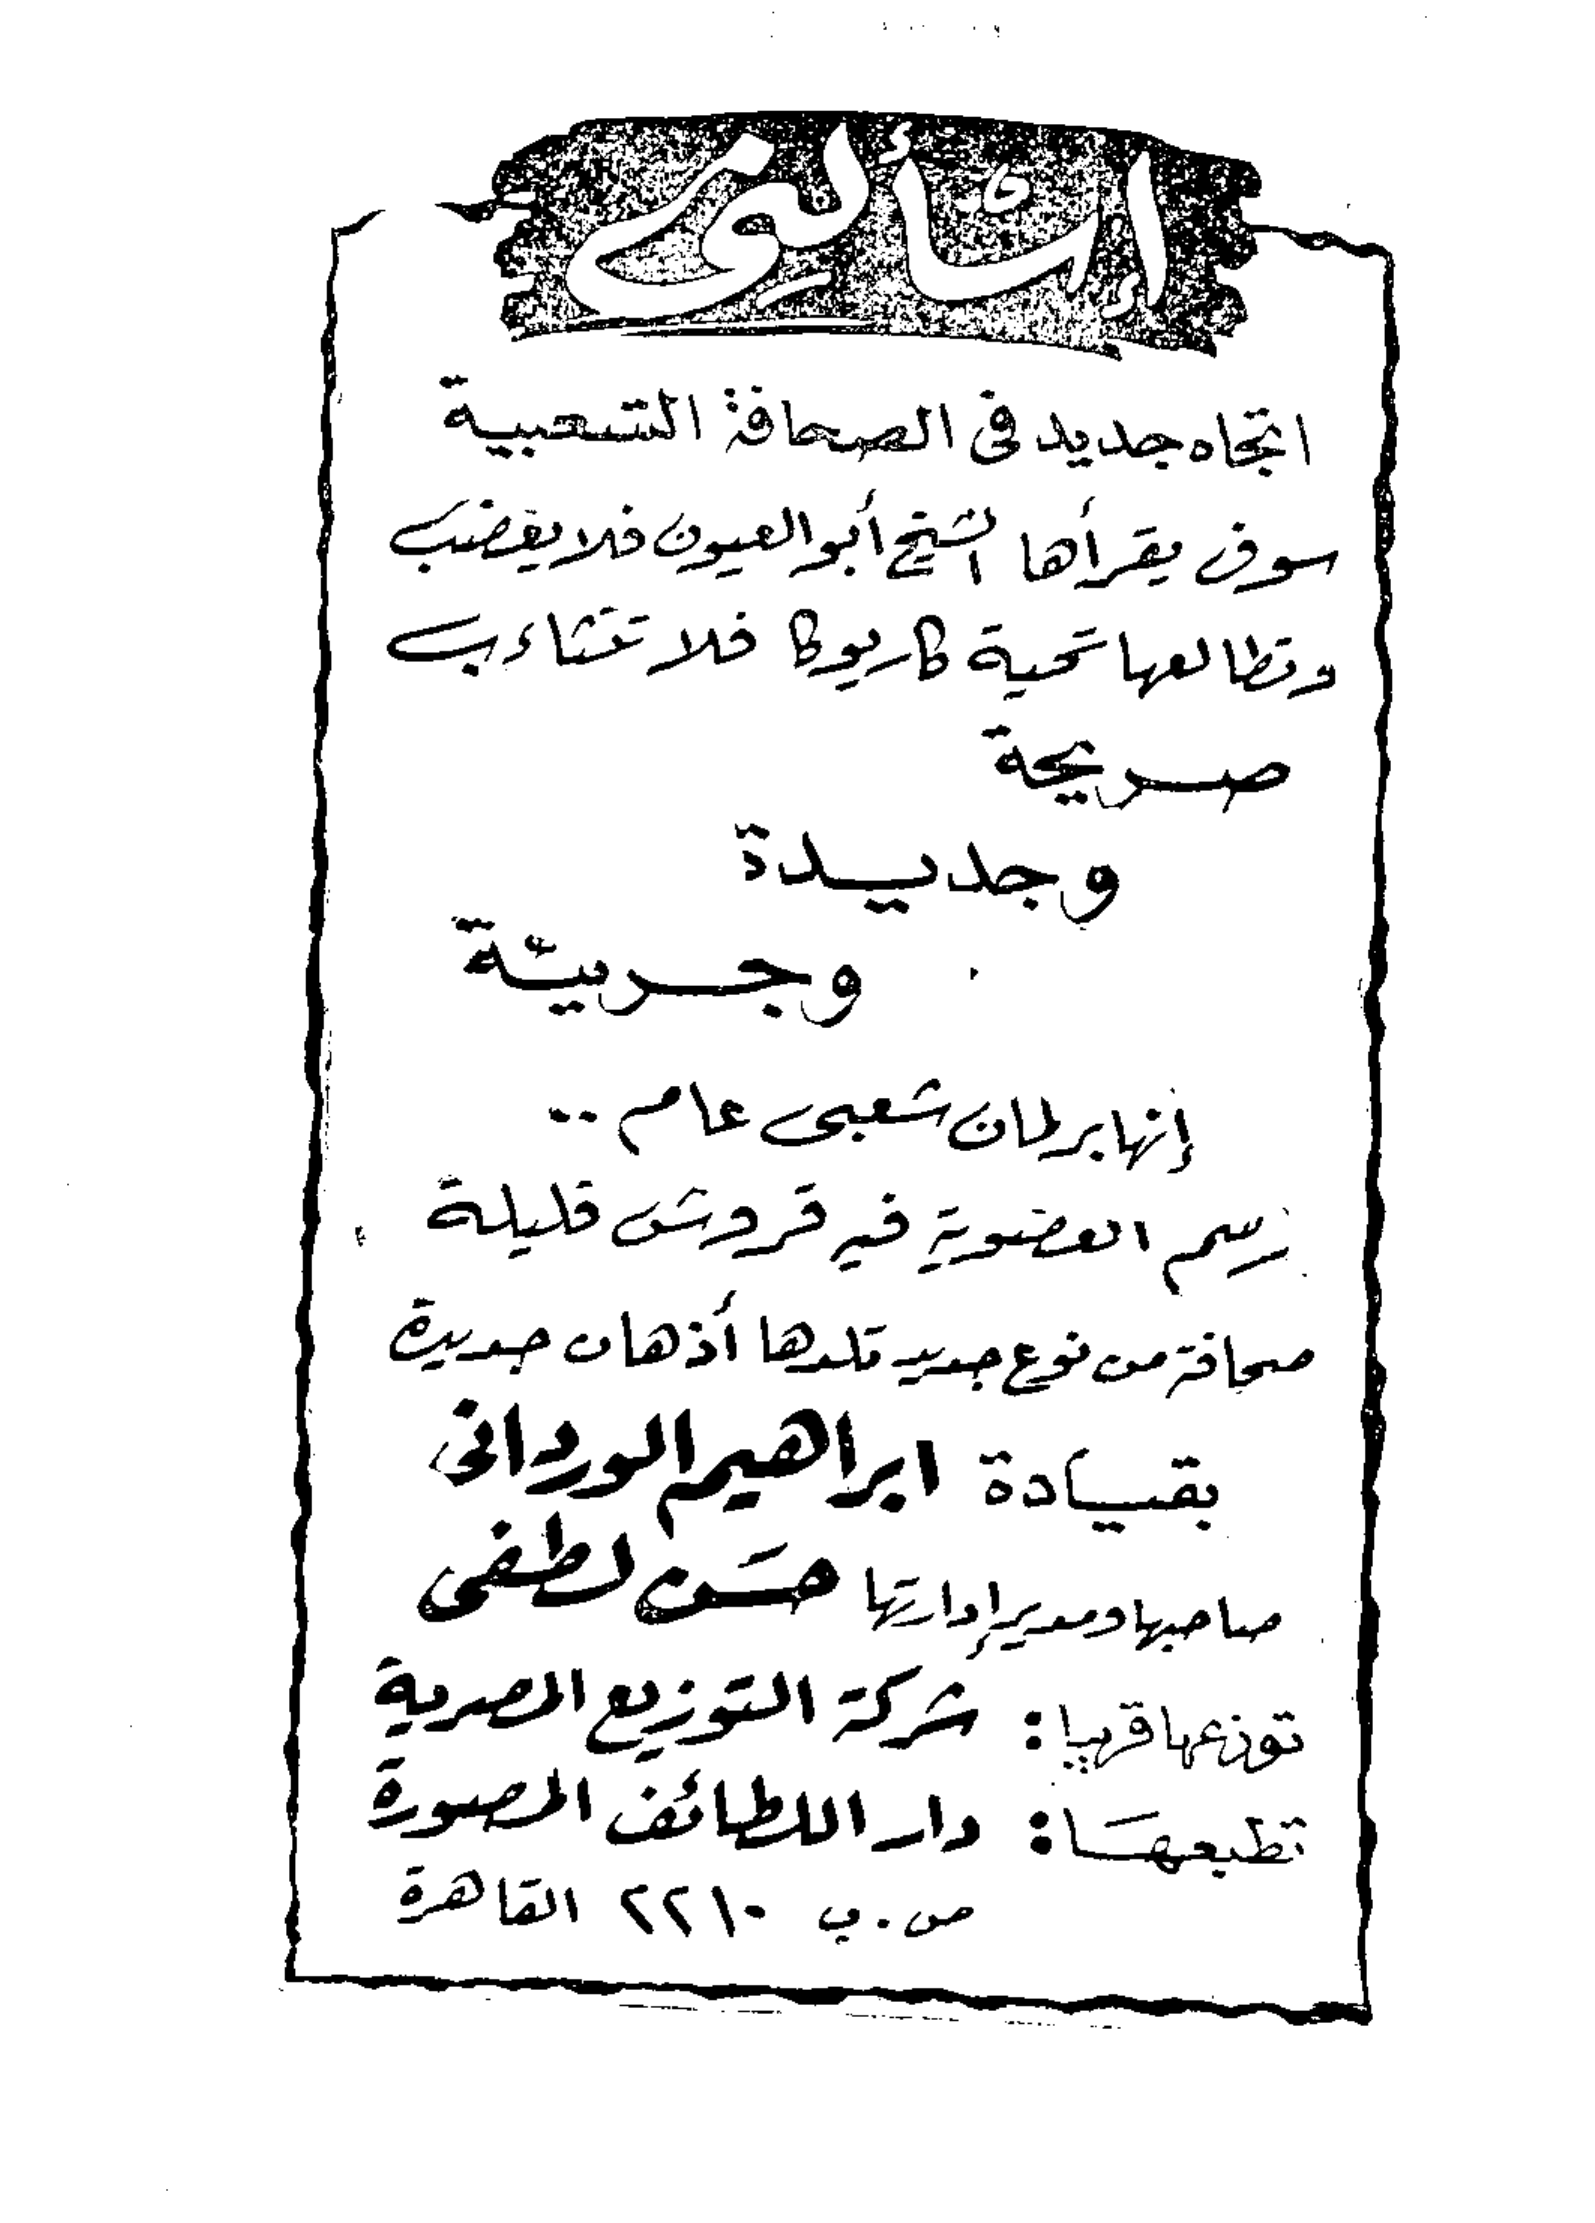 إسألونى
اتجاه جديد فى الصحافة الشعبية
سوف يقرأها الشيخ أبو العيون فلا يغضب
وتطالعها تحية كاريوكا فلا تتثاءب
صريحة
وجديدة
وجريئة
إنها برلمان شعبى عام ..
رسم العضوية فيه قروش قليلة
صحافة من نوع جديد تلدها أذهان جديدة
بقيادة ابراهيم الوردانى
صاحبها ومدير إدارتها حسن لطفى
توزعها قريبا : شركة التوزيع المصرية
تطبعها : دار اللطائف المصورة
ص . ب ٢٢١٠ القاهرة